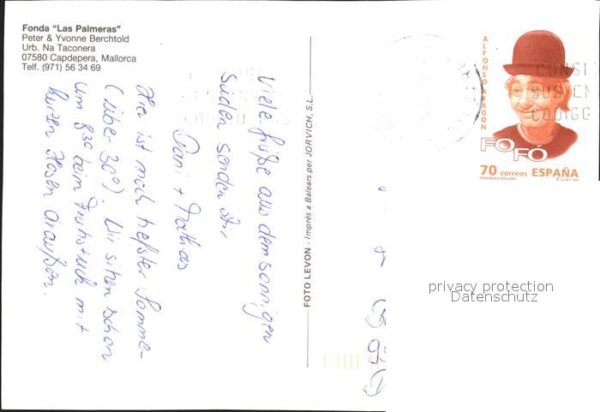 Fonda "Las Palmeras"
Peter & Yvonne Berchtold
Urb. Na Taconera
07580 Capdepera, Mallorca
Telf. (971) 56 34 69
Viele Grüße aus dem sonnigen
Süden senden Dir
Dani + Mathias
Hier ist noch tiefster Somme-
(über 30°). Wir sitzen schon
um 8³⁰ beim Frühstück mit
kurzen Hosen draußen.
FOTO LEVON - Imprés a Balears per JORVICH, S.L.
ALFONSO ARAGON
FOFÓ
70 correos ESPAÑA
CONSI
CODIGO
privacy protection
Datenschutz